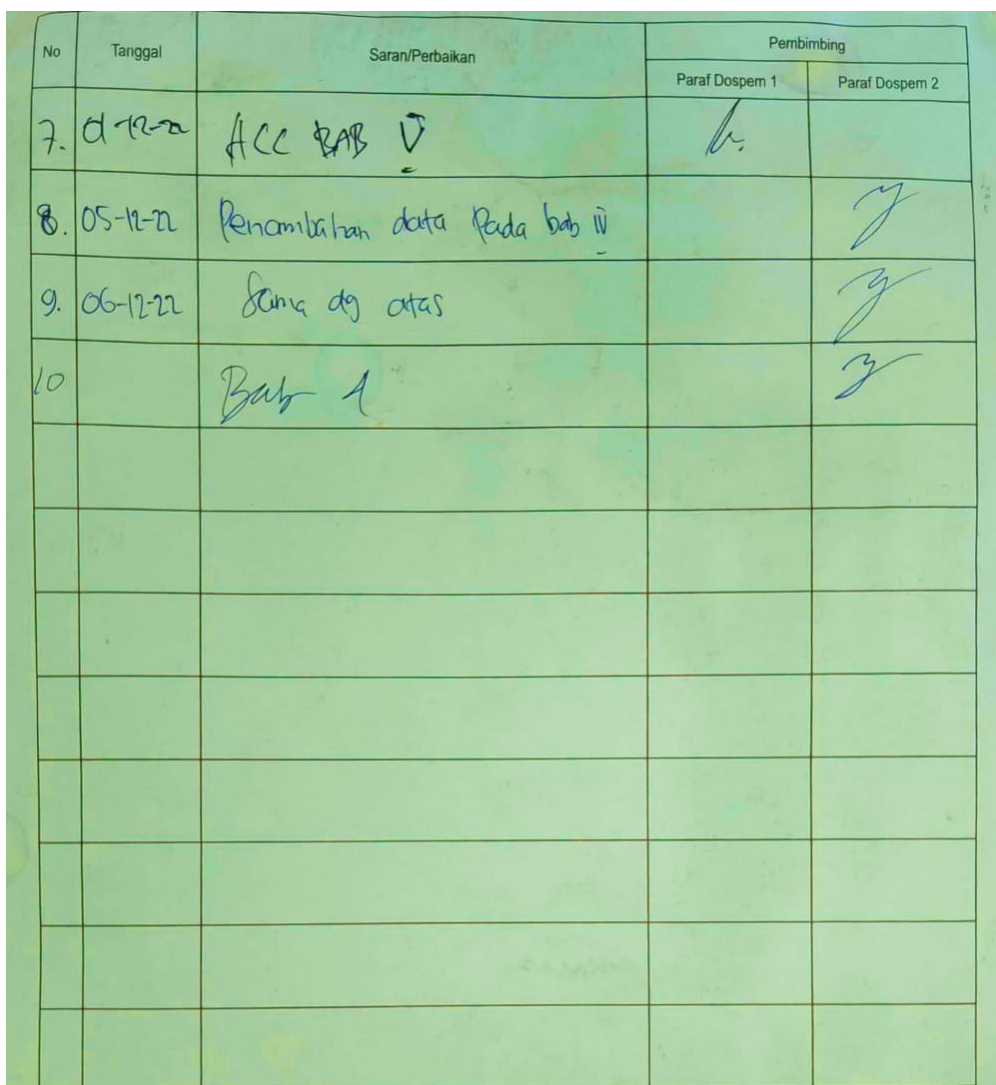 No Tanggal Saran/Perbaikan Pembimbing
Paraf Dospem 1 Paraf Dospem 2
7. 01-12-22 ACC BAB V
8. 05-12-22 Penambahan data Pada bab IV
9. 06-12-22 Sama dg atas
10 Bab